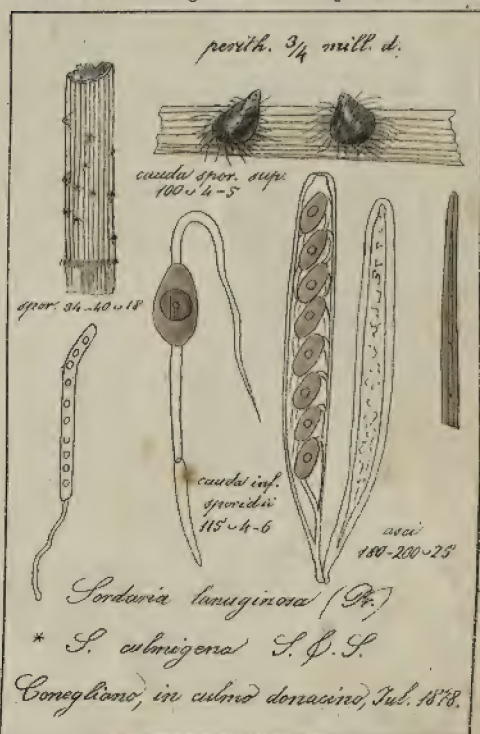 perith. 3/4 mill. d.
cauda spor. sup.
100 ⌣ 4-5
spor. 34-40 ⌣ 18
cauda inf.
sporidii
115 ⌣ 4-6
asci
180-200 ⌣ 25
Sordaria lanuginosa (Pr.)
* S. culmigena S. & S.
Conegliano, in culmo donacino, Jul. 1878.